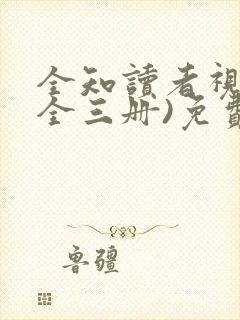 全知讀者視
全三册)免費
鲁疆